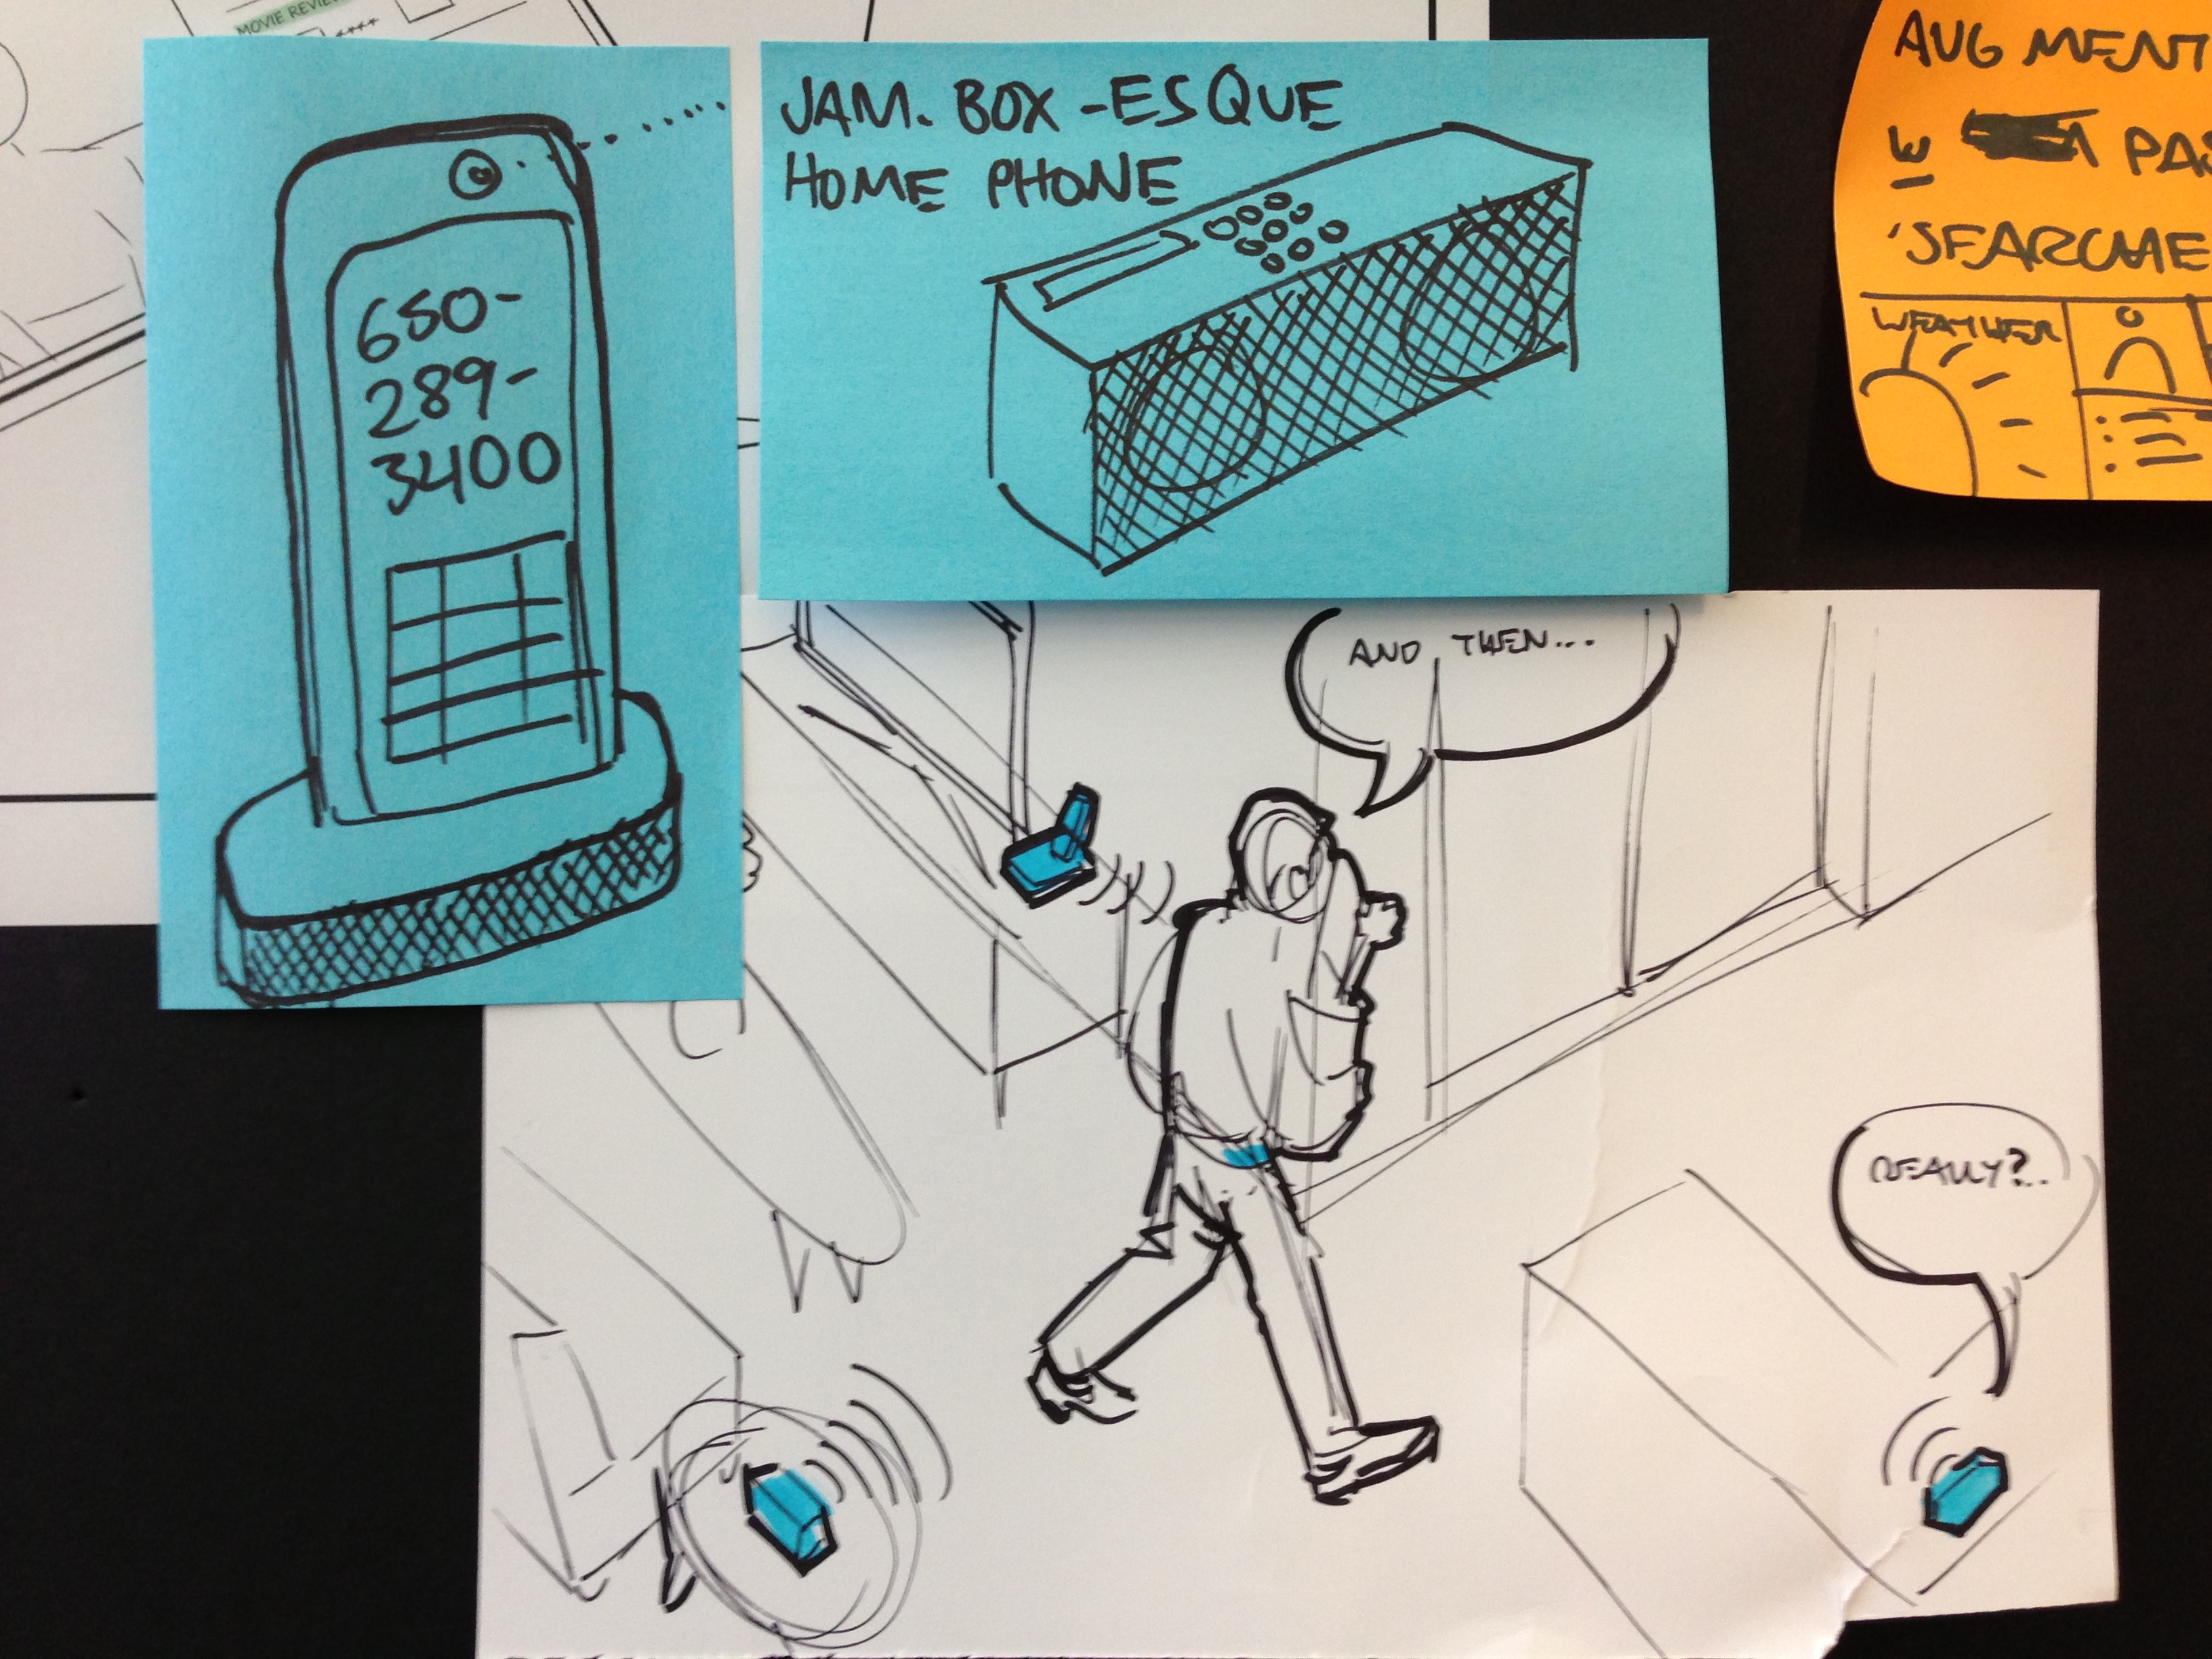 MOVIE REVIEW
650-
289-
3400
JAM. BOX -ESQUE
HOME PHONE
AUGMENT
W PA
'SEARCHE
WEATHER
AND THEN...
REALLY?..